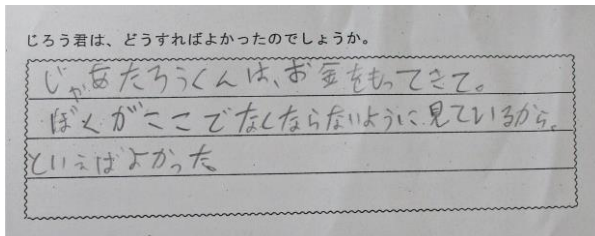 じろう君は、どうすればよかったのでしょうか。
じゃあたろうくんは、お金をもってきて。
ぼくがここでなくならないように見ているから。
といえばよかった。